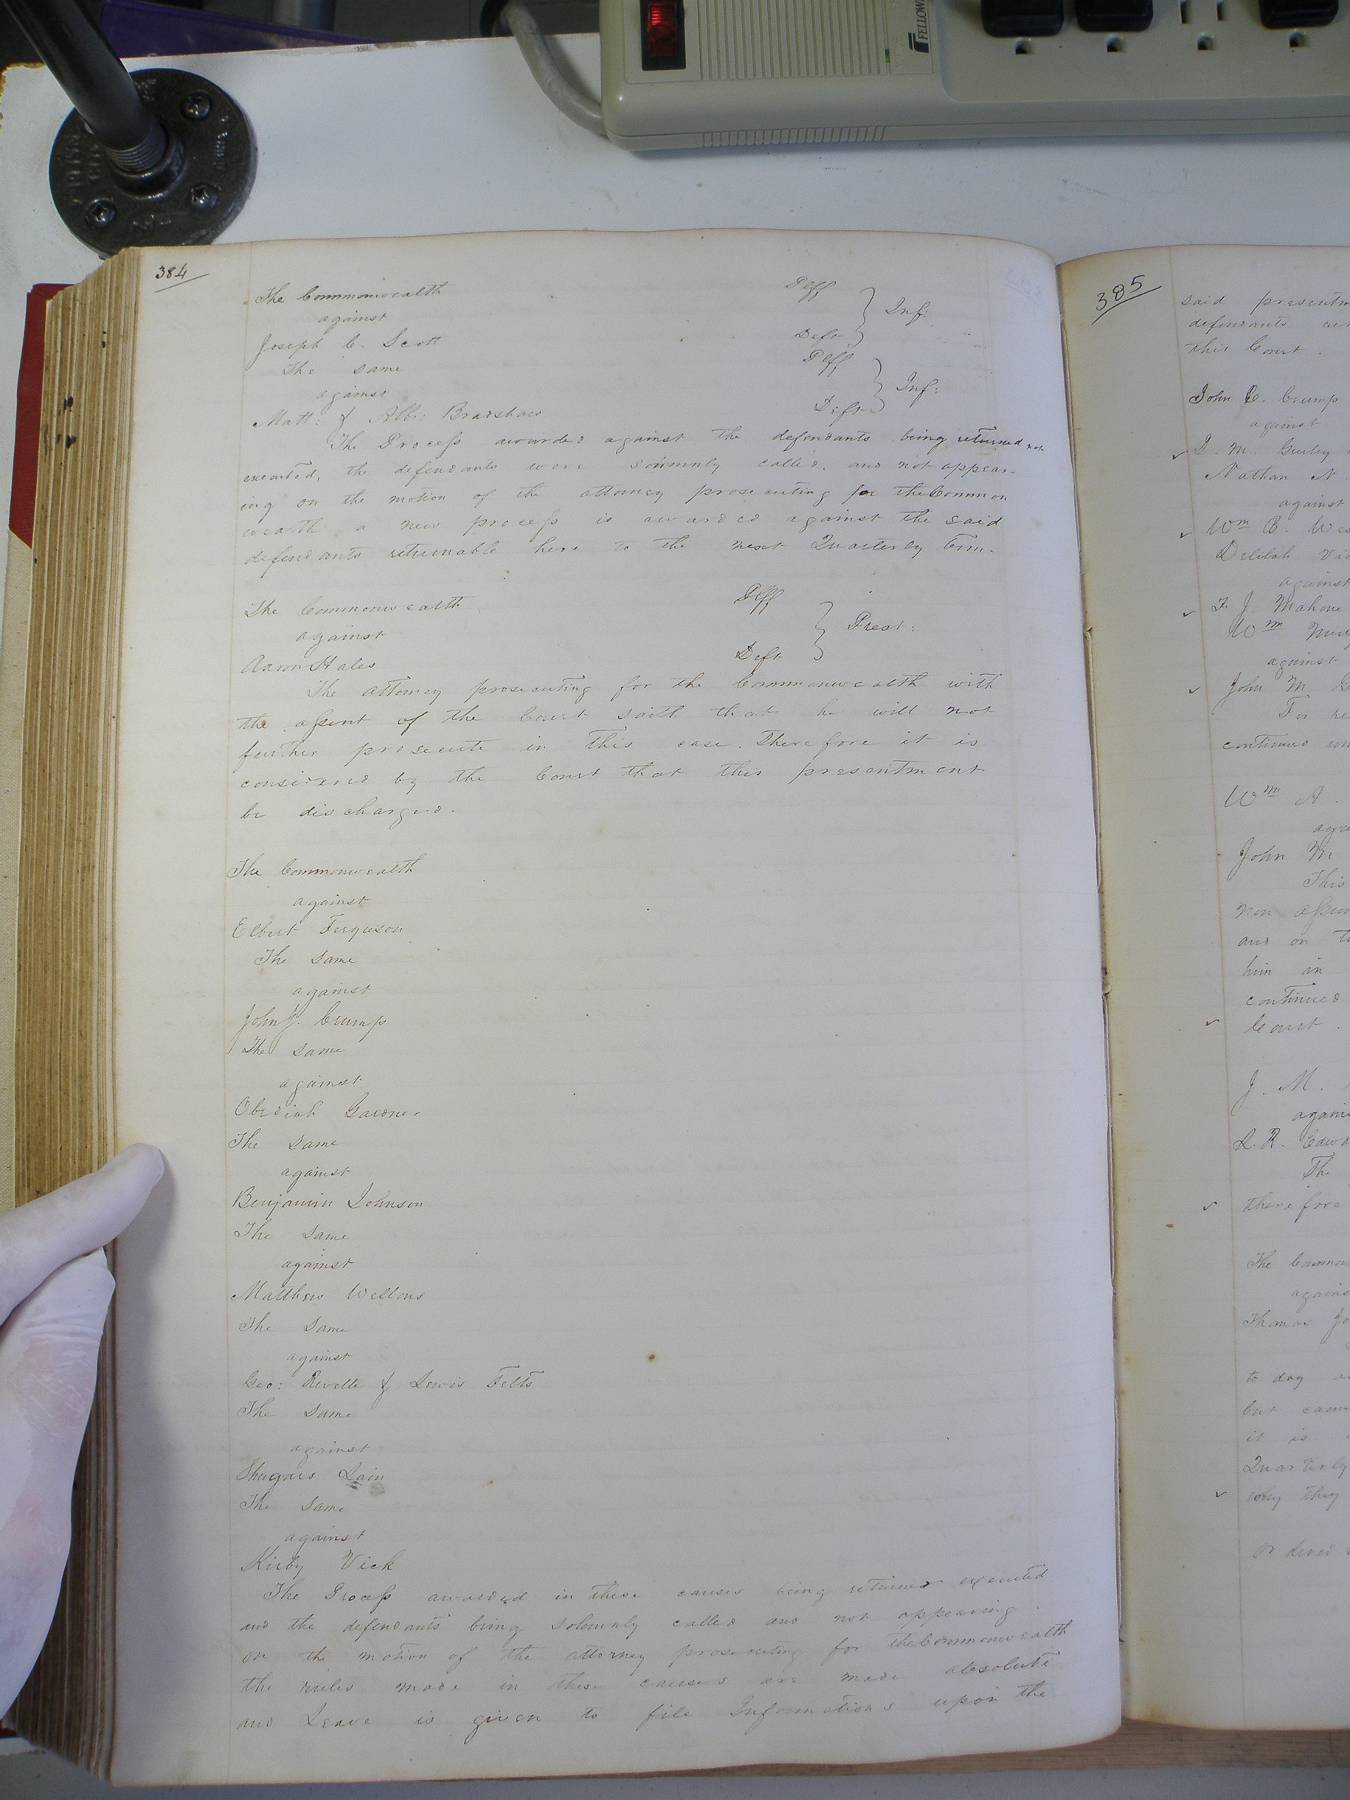 FELLOWE
384
The Commonwealth Plff
against } Inf:
Joseph C. Scott Deft
The same Plff
against } Inf:
Matt: & Alb: Bradshaw Deft
The Process awarded against the defendants being returned not
executed, the defendants were solemnly called, and not appear-
ing on the motion of the attorney prosecuting for the Common
wealth a new process is awarded against the said
defendants returnable here to the next Quarterly Term.
The Commonwealth Plff
against } Prest:
Aaron Hales Deft
The attorney prosecuting for the Commonwealth with
the assent of the Court saith that he will not
further prosecute in this case. Therefore it is
considered by the Court that this presentment
be discharged.
The Commonwealth
against
Elbert Ferguson
The same
against
John J. Crump
The same
against
Obediah Gardner
The same
against
Benjamin Johnson
The same
against
Matthew Wellons
The same
against
Geo: Rivelle & Lewis Felts
The same
against
Lain
The same
against
Kirby Vick
The Process awarded in these causes being returned executed
and the defendants being solemnly called and not appearing
on the motion of the attorney prosecuting for the Commonwealth
the rules made in these causes are made absolute
and Leave is given to file Informations upon the
385
said presentm
defendants
this Court.
John C. Crump
against
D. M. Gurley
Nathan N.
against
Wm B. Wes
Delilah Vic
against
F. J. Mahone
Wm
against
John M. G
For re
continued un
Wm A.
aga
John M
This
non assum
and on t
him in
continued
Court.
J. M.
again
L. R. Edwa
The
therefore
The Common
agains
Thomas Jo
to day
but came
it is
Quarterly
why they
Ordered